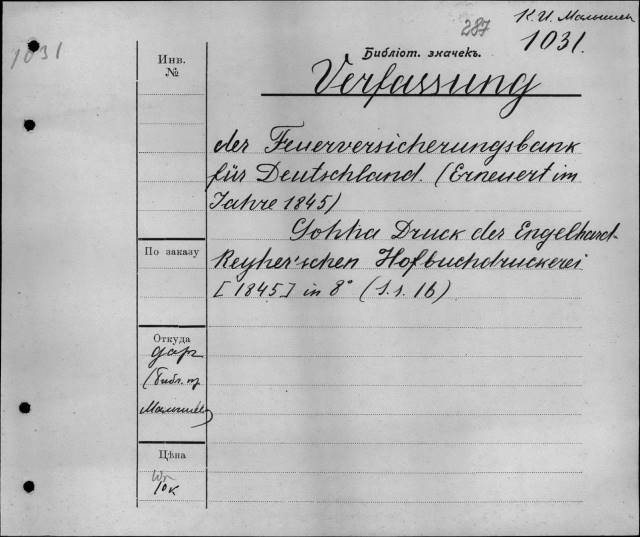 К. И. Малышев
287
1031.
1031
Библіот. значекъ.
Инв.
№
Verfassung
der Feuerversicherungsbank
für Deutschland. (Erneuert im
Jahre 1845)
Gotha Druck der Engelhard-
Reyher'schen Hofbuchdruckerei
[1845] in 8° (S.s. 16)
По заказу
Откуда
дар
(библ. пр
Малышев)
Цѣна
10 к